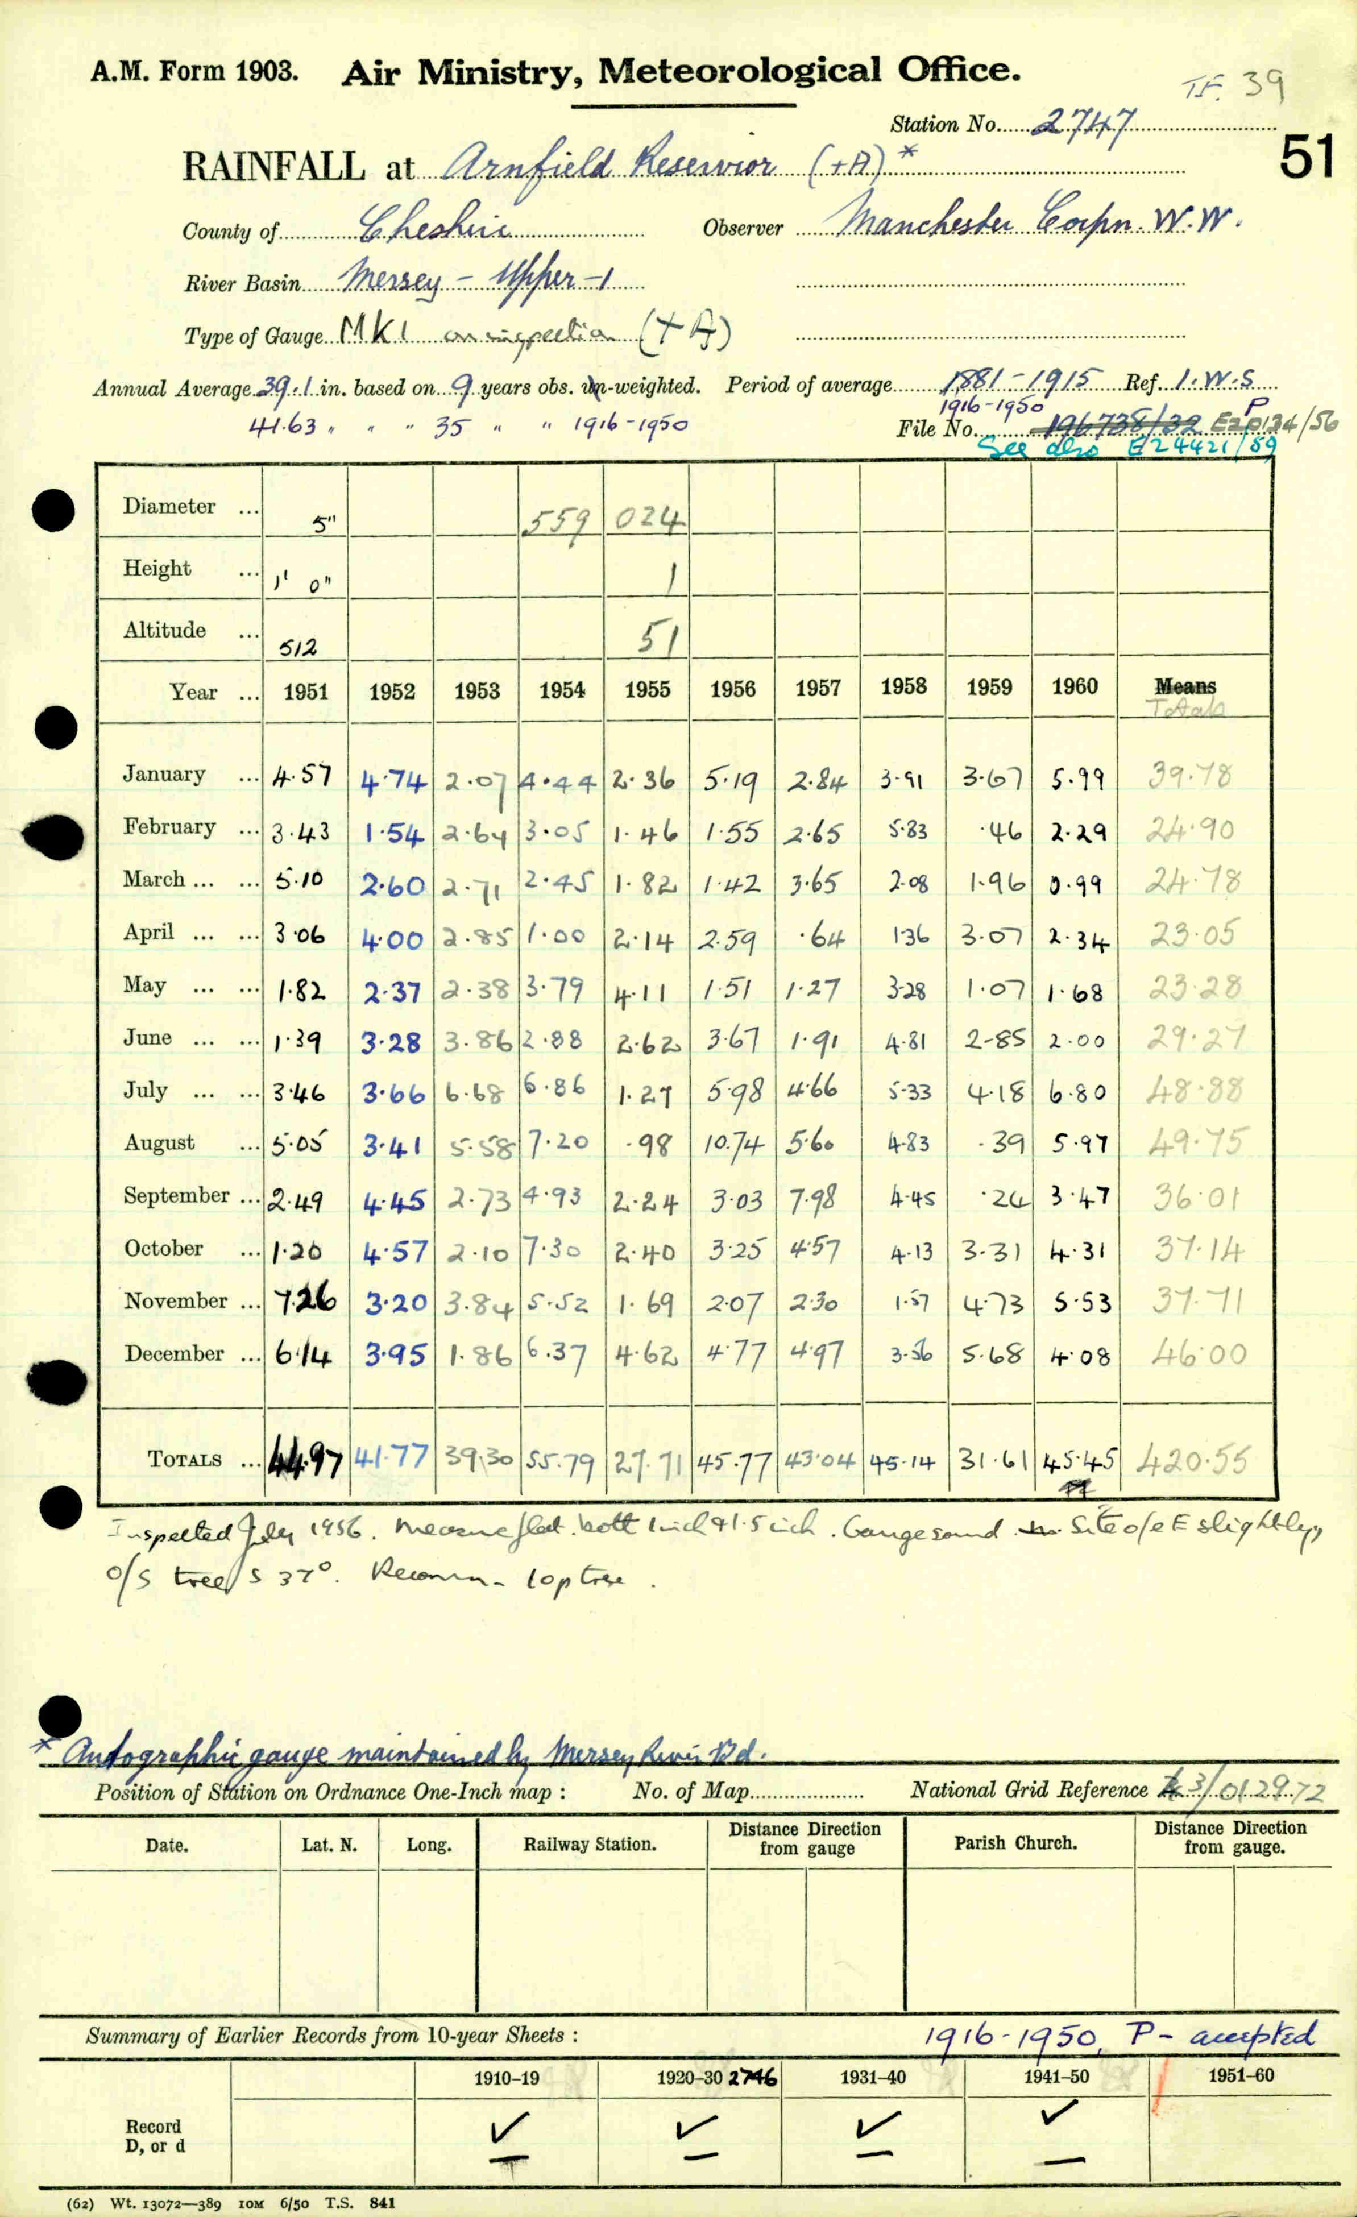 A.M. Form 1903. Air Ministry, Meteorological Office.
T.F. 39
Station No. 2747
51
RAINFALL at Arnfield Reservior (+A)*
County of Cheshire Observer Manchester Corpn. W.W.
River Basin Mersey - Upper - 1
Type of Gauge MK1 on inspection (+A)
Annual Average 39.1 in. based on 9 years obs. un-weighted. Period of average 1881-1915 Ref. I.W.S
41.63 " " " 35 " " 1916-1950 1916-1950 P
File No. 196738/32 E20134/56
See also E24421/59
Diameter ... 5" 559 024
Height ... 1' 0" 1
Altitude ... 512 51
Year ... 1951 1952 1953 1954 1955 1956 1957 1958 1959 1960 Means
Totals
January ... 4.57 4.74 2.07 4.44 2.36 5.19 2.84 3.91 3.67 5.99 39.78
February ... 3.43 1.54 2.64 3.05 1.46 1.55 2.65 5.83 .46 2.29 24.90
March ... ... 5.10 2.60 2.71 2.45 1.82 1.42 3.65 2.08 1.96 0.99 24.78
April ... ... 3.06 4.00 2.85 1.00 2.14 2.59 .64 1.36 3.07 2.34 23.05
May ... ... 1.82 2.37 2.38 3.79 4.11 1.51 1.27 3.28 1.07 1.68 23.28
June ... ... 1.39 3.28 3.86 2.88 2.62 3.67 1.91 4.81 2.85 2.00 29.27
July ... ... 3.46 3.66 6.68 6.86 1.27 5.98 4.66 5.33 4.18 6.80 48.88
August ... 5.05 3.41 5.58 7.20 .98 10.74 5.60 4.83 .39 5.97 49.75
September ... 2.49 4.45 2.73 4.93 2.24 3.03 7.98 4.45 .24 3.47 36.01
October ... 1.20 4.57 2.10 7.30 2.40 3.25 4.57 4.13 3.31 4.31 37.14
November ... 7.26 3.20 3.84 5.52 1.69 2.07 2.30 1.57 4.73 5.53 37.71
December ... 6.14 3.95 1.86 6.37 4.62 4.77 4.97 3.56 5.68 4.08 46.00
TOTALS ... 44.97 41.77 39.30 55.79 27.71 45.77 43.04 45.14 31.61 45.45 420.55
Inspected July 1956. Measure flat. both 1 inch & 1.5 inch. Gauge sound. Site o/e E slightly,
o/s tree S 37°. Recomm - lop tree.
* Autographic gauge maintained by Mersey River Bd.
Position of Station on Ordnance One-Inch map : No. of Map National Grid Reference 43/012972
Date. Lat. N. Long. Railway Station. Distance Direction from gauge Parish Church. Distance Direction from gauge.
Summary of Earlier Records from 10-year Sheets : 1916-1950, P - accepted
1910-19 1920-30 2746 1931-40 1941-50 1951-60
Record
D, or d ✓ ✓ ✓ ✓
(62) Wt. 13072—389 10M 6/50 T.S. 841